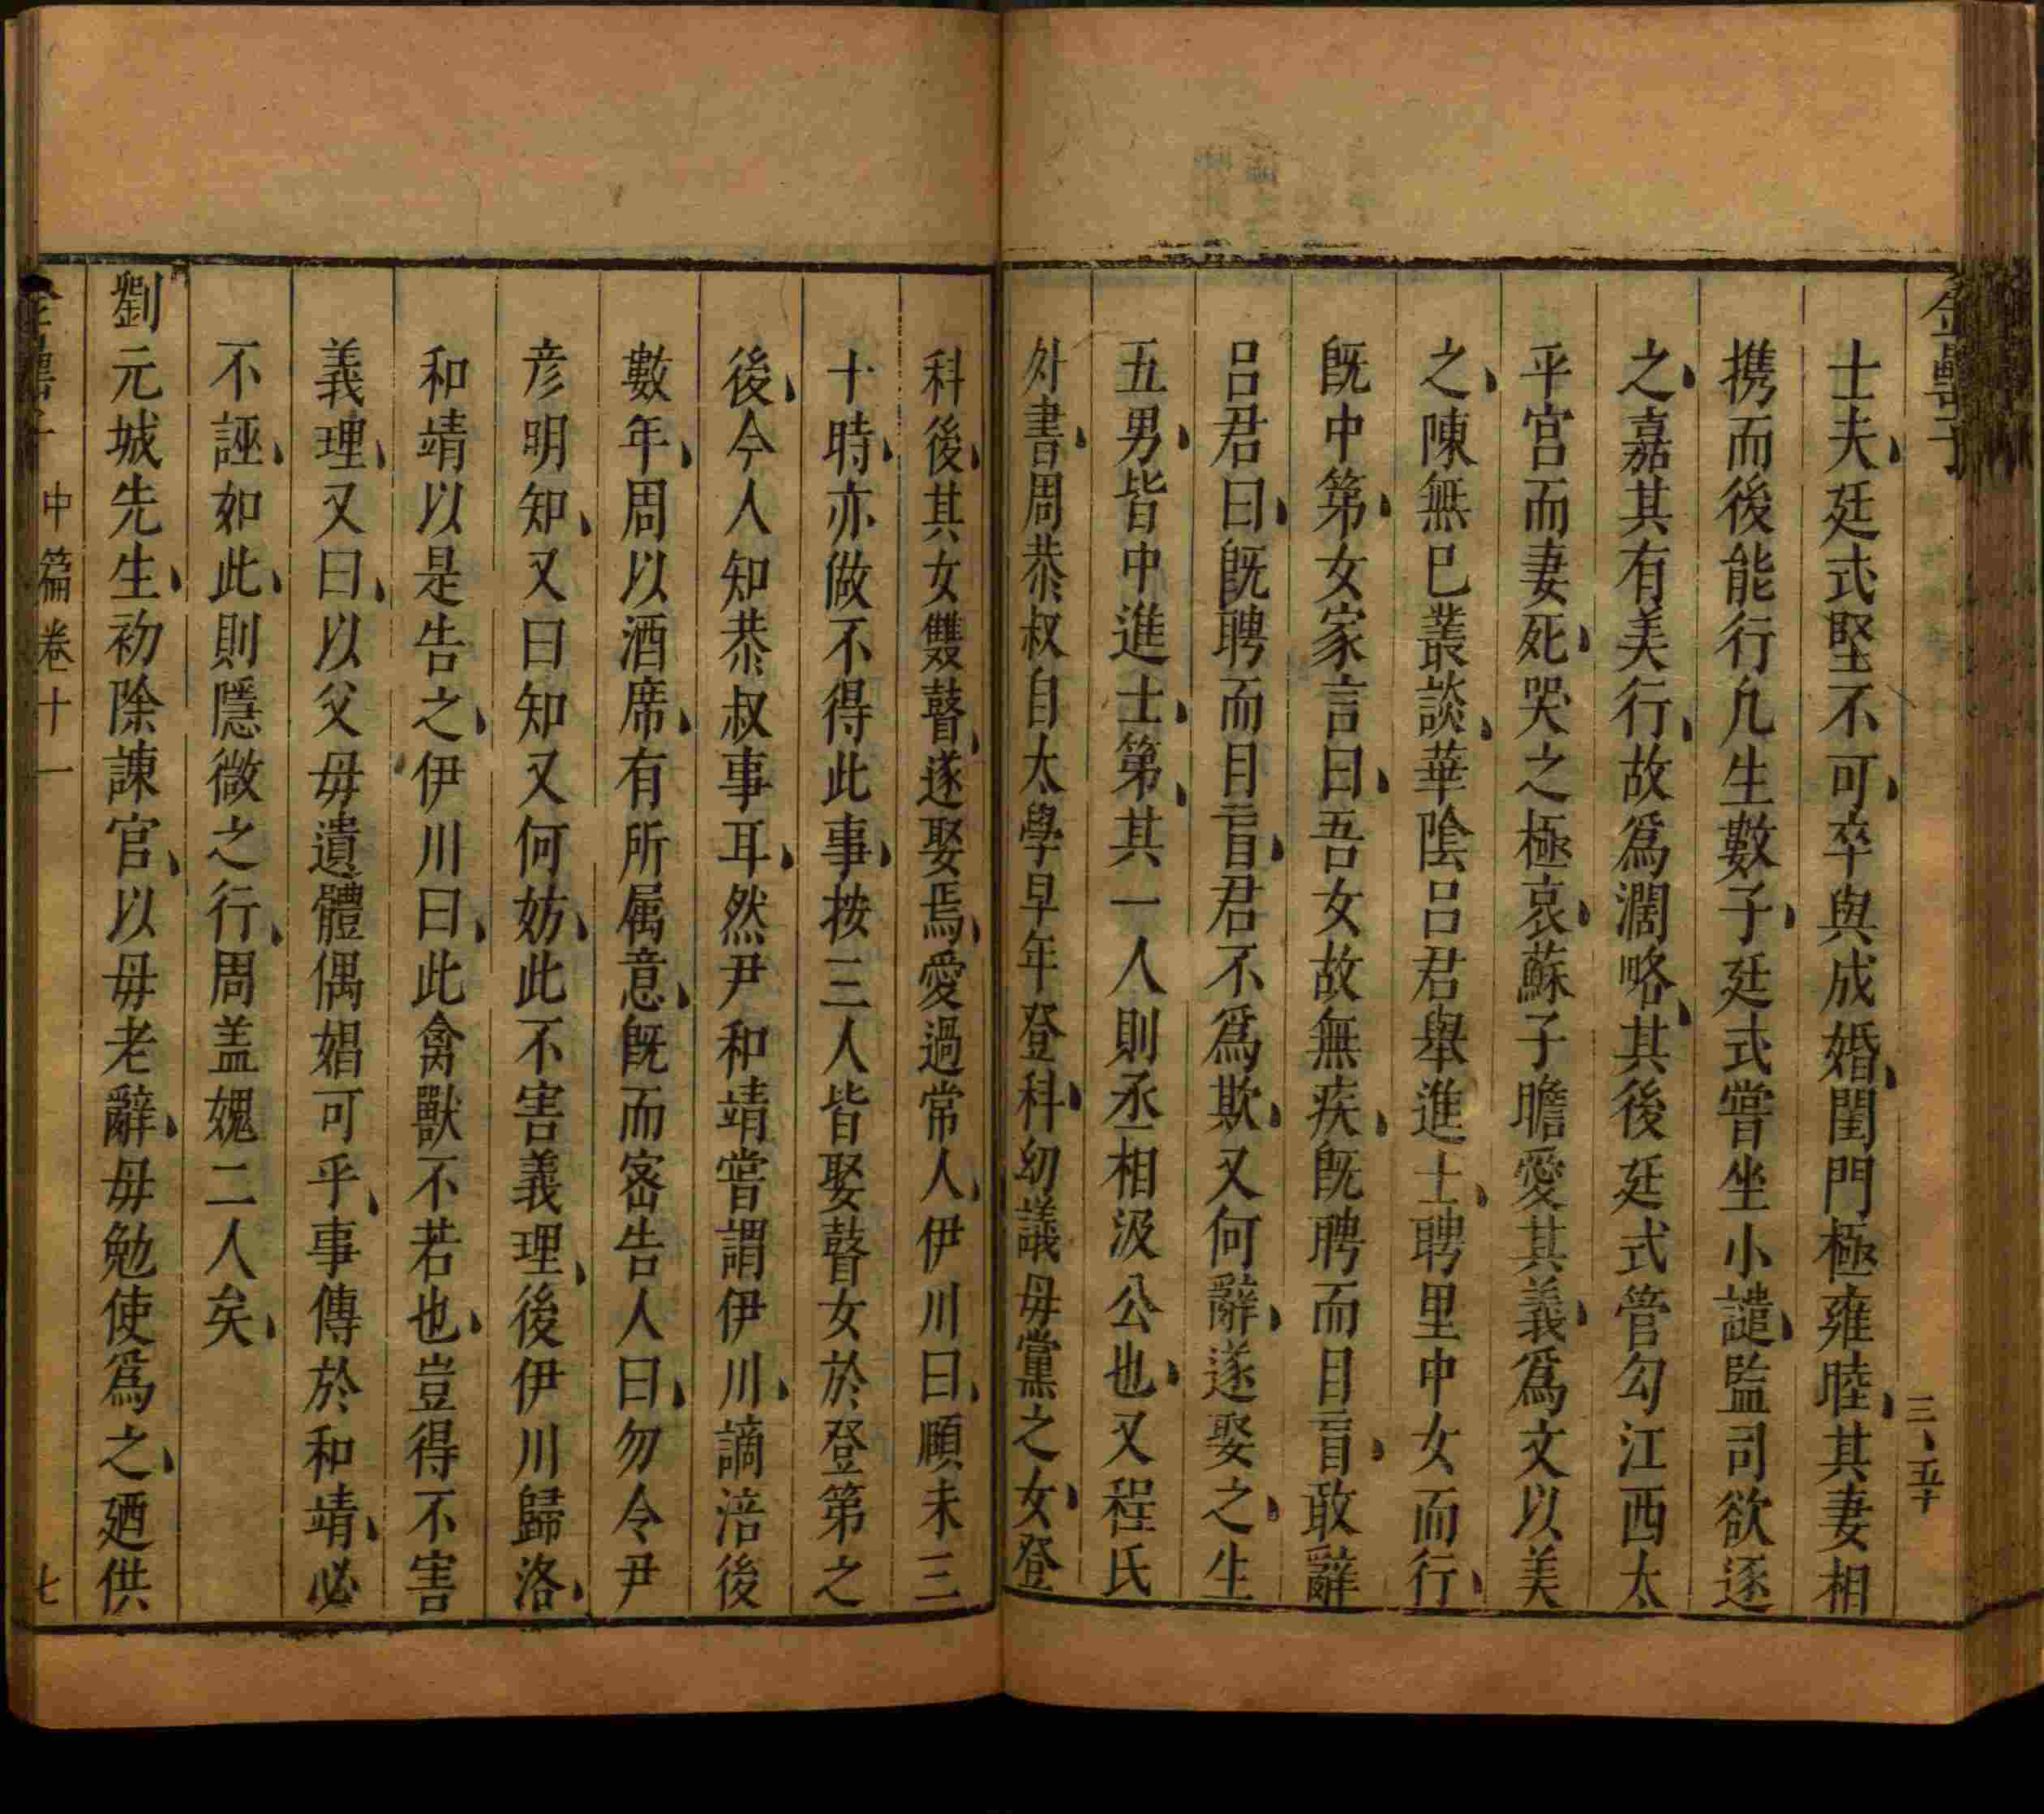 金罍子
三、五十
士夫、廷式堅不可、卒與成婚、閨門極雍睦、其妻相
携而後能行、凢生數子、廷式嘗坐小譴、監司欲逐
之、嘉其有美行、故爲濶略、其後廷式管勾江西太
平宫而妻死、哭之極哀、蘇子瞻愛其義、爲文以美
之、陳無巳叢談、華陰呂君舉進士、聘里中女而行、
旣中第、女家言曰、吾女故無疾、旣聘而目盲、敢辭
呂君曰、旣聘而目盲、君不爲欺、又何辭、遂娶之、生
五男、皆中進士、第、其一人則丞相汲公也、又程氏
外書、周恭叔自太學早年登科、幼議毋黨之女、登
科後、其女雙瞽、遂娶焉、愛過常人、伊川曰、頤未三
十時、亦做不得此事、按三人皆娶瞽女於登第之
後、今人知恭叔事耳、然尹和靖嘗謂伊川、謫涪後
數年、周以酒席、有所属意、旣而宻告人曰、勿令尹
彦明知、又曰知又何妨、此不害義理、後伊川歸洛、
和靖以是告之、伊川曰、此禽獸不若也、豈得不害
義理、又曰、以父毋遺體偶娼可乎、事傳於和靖、必
不誣、如此、則隱微之行、周盖媿二人矣、
劉元城先生、初除諫官、以毋老辭、毋勉使爲之、廼供
中篇卷十一
七